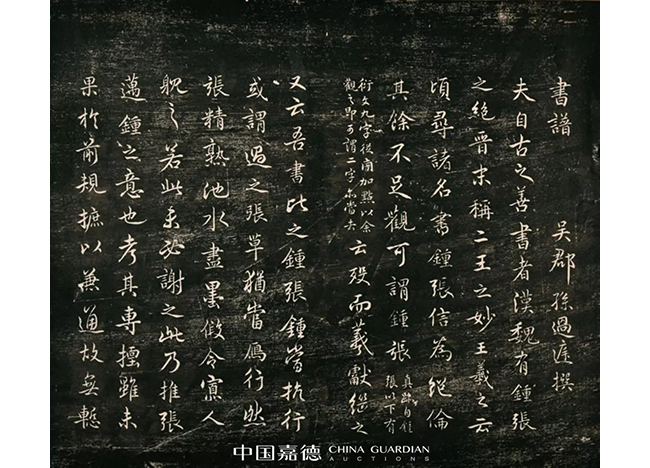 書譜 吳郡孫過庭撰
夫自古之善書者漢魏有鍾張
之絕晉末稱二王之妙王羲之云
頃尋諸名書鍾張信為絕倫
其餘不足觀可謂鍾張
真跡自鍾
張以下有
衍文九字後閒加點以余
觀之即可謂二字亦當去
云歿而羲獻繼之
又云吾書比之鍾張鍾當抗行
或謂過之張草猶當鴈行然
張精熟池水盡墨假令寡人
躭之若此未必謝之此乃推張
邁鍾之意也考其專擅雖未
果於前規摭以兼通故無慙
中国嘉德 CHINA GUARDIAN
AUCTIONS